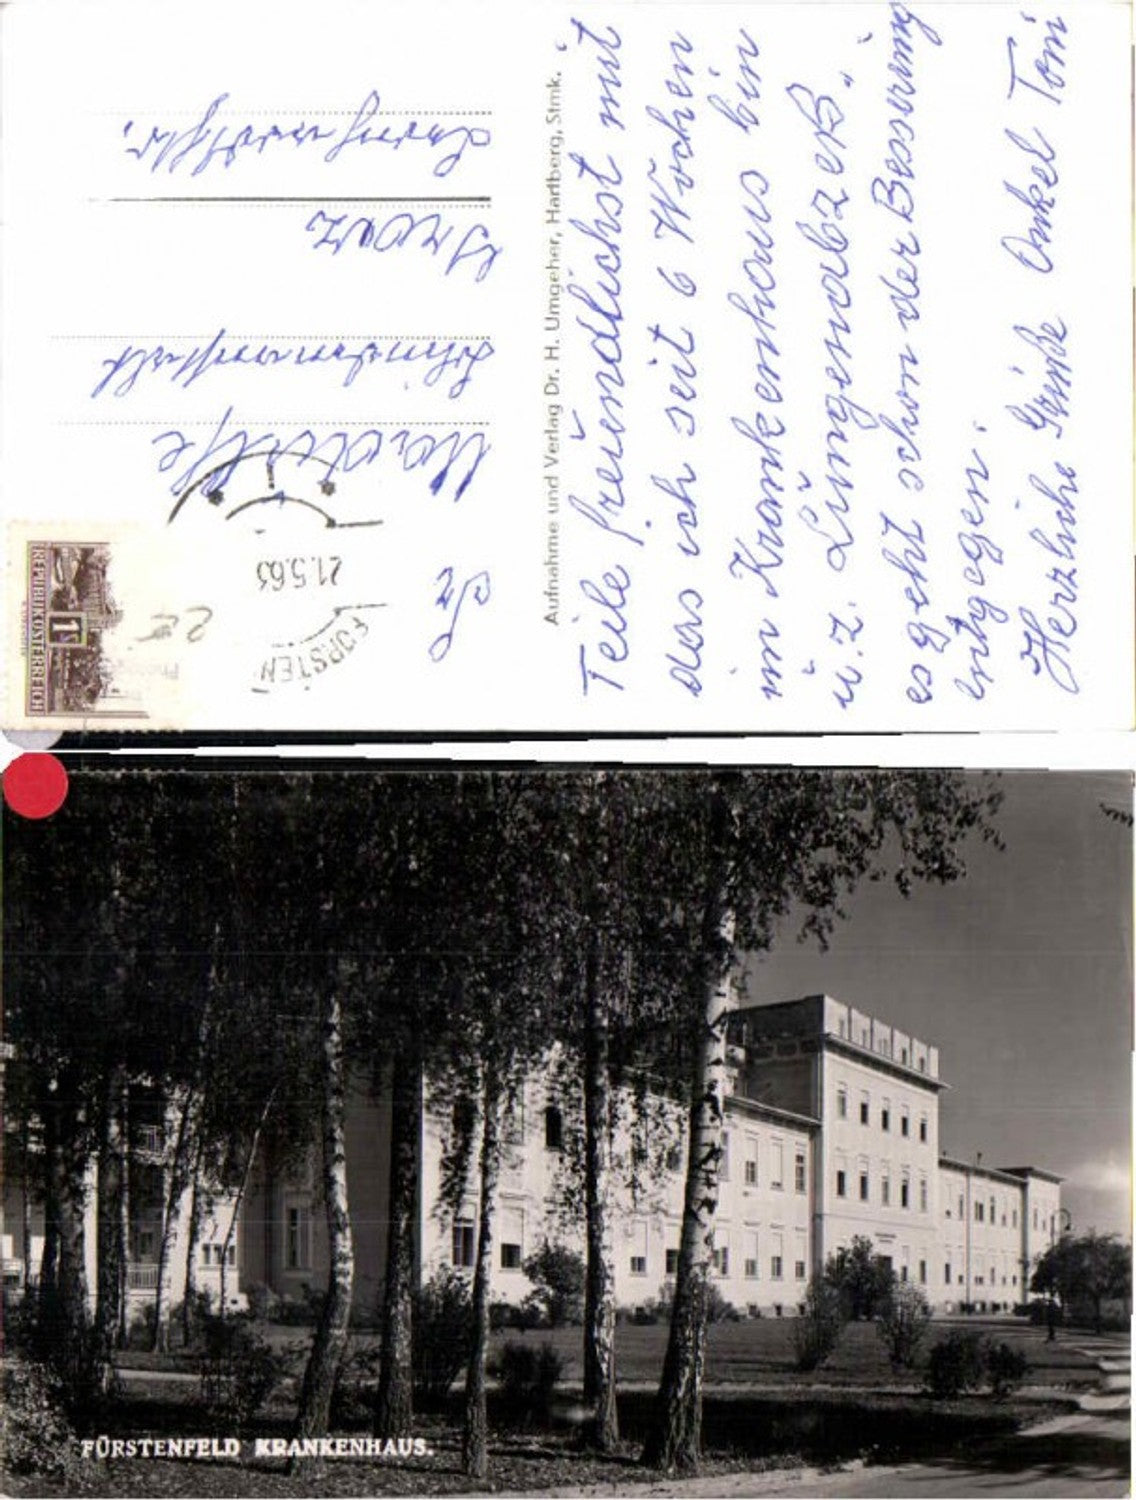 Teile freundlichst mit
das ich seit 6 Wochen
im Krankenhaus bin
u. z. Lungenabzeß.
es geht schon der Besserung
entgegen.
Herzliche Grüße Onkel Toni
Aufnahme und Verlag Dr. H. Umgeher, Hartberg, Stmk.
An
Graz
REPUBLIK ÖSTERREICH
1
FÜRSTEN
21.5.63
FÜRSTENFELD KRANKENHAUS.